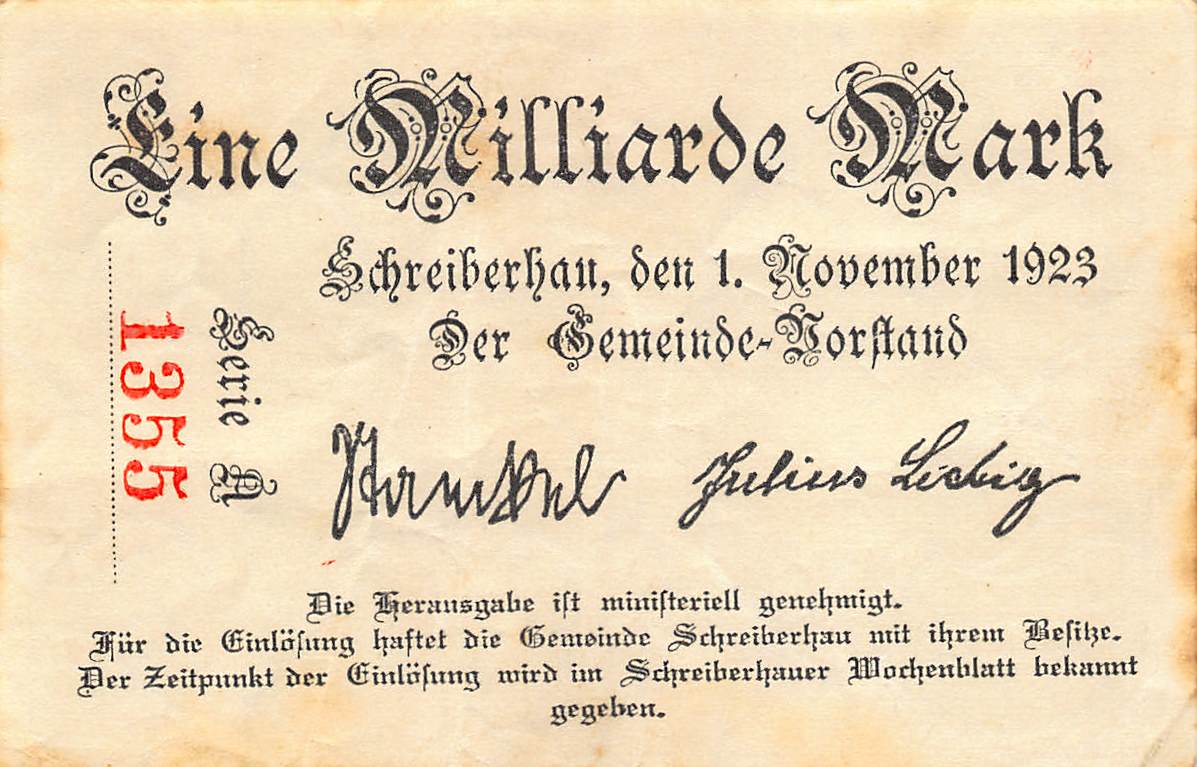 Eine Milliarde Mark
Schreiberhau, den 1. November 1923
Der Gemeinde-Vorstand
Serie A
1355
Julius Liebig
Die Herausgabe ist ministeriell genehmigt.
Für die Einlösung haftet die Gemeinde Schreiberhau mit ihrem Besitze.
Der Zeitpunkt der Einlösung wird im Schreiberhauer Wochenblatt bekannt
gegeben.